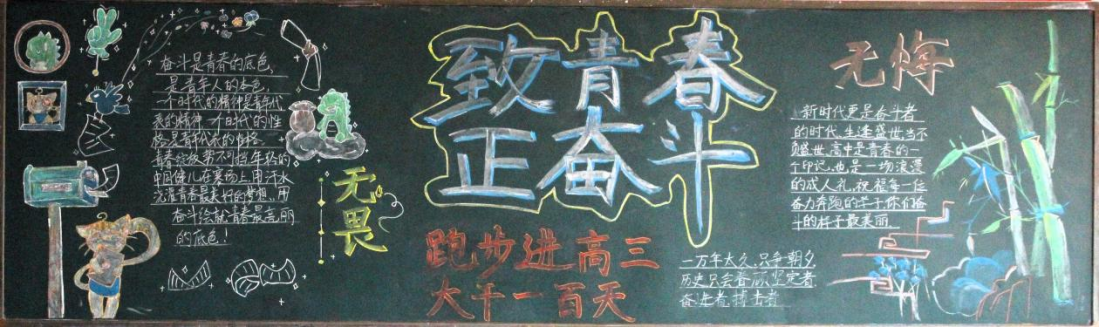 奋斗是青春的底色,
是青年人的本色,
一个时代的精神是青年代
表的精神 一个时代的性
格是青年代表的性格.
青春绽放 势不可挡 年轻的
中国健儿在赛场上用汗水
浇灌青春最美好的梦想,用
奋斗绘就青春最亮丽
的底色!
无畏
致青春
正奋斗
跑步进高三
大干一百天
一万年太久,只争朝夕
历史只会眷顾坚定者
奋进者 搏击者
无悔
新时代更是奋斗者
的时代,生逢盛世,当不
负盛世,高中是青春的一
个印记,也是一场浪漫
的成人礼,祝福每一位
奋力奔跑的学子,你们奋
斗的样子最美丽.